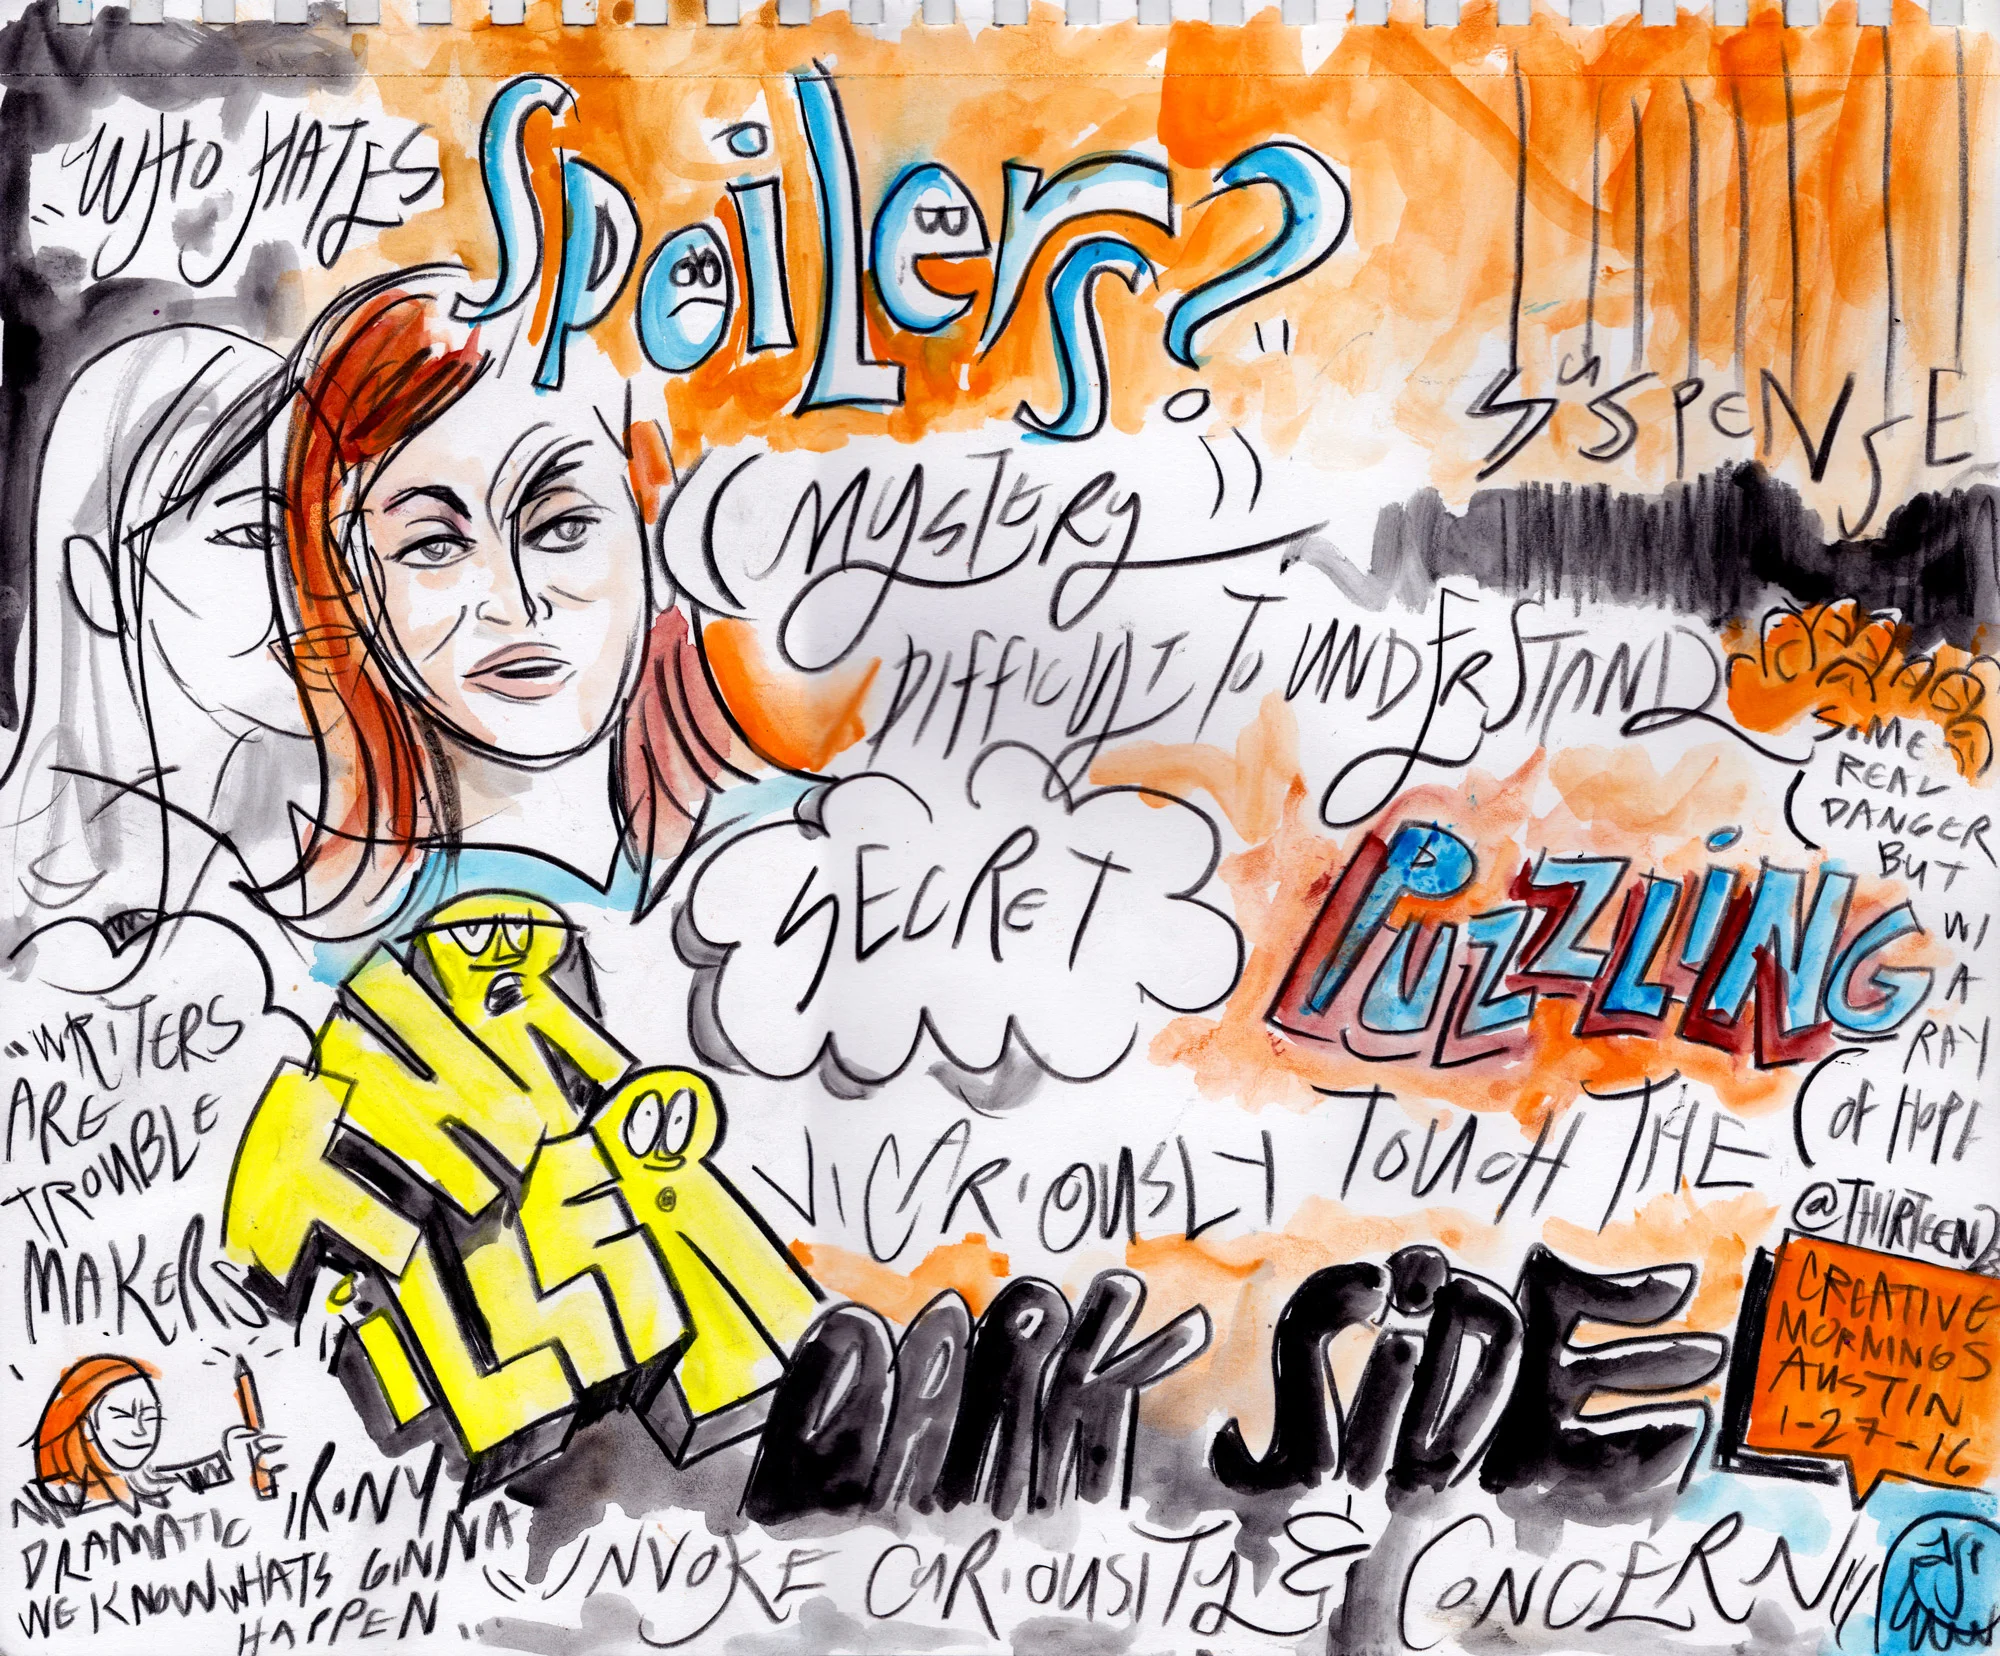 "WHO HATES
SPOiLERS?"
SUSPENSE
MYSTERY
DIFFICULT TO UNDERSTAND
SOME
REAL
DANGER
BUT
W/
A
RAY
OF HOPE
SECRET
PUZZLiNG
"WRITERS
ARE
TROUBLE
MAKERS
THRiLLER
VICARIOUSLY TOUCH THE
DARK SiDE
@THIRTEEN23
CREATIVE
MORNINGS
AUSTIN
1-27-16
DRAMATIC IRONY
WE KNOW WHATS GINNA
HAPPEN...
"INVOKE CURIOUSITY & CONCERN"